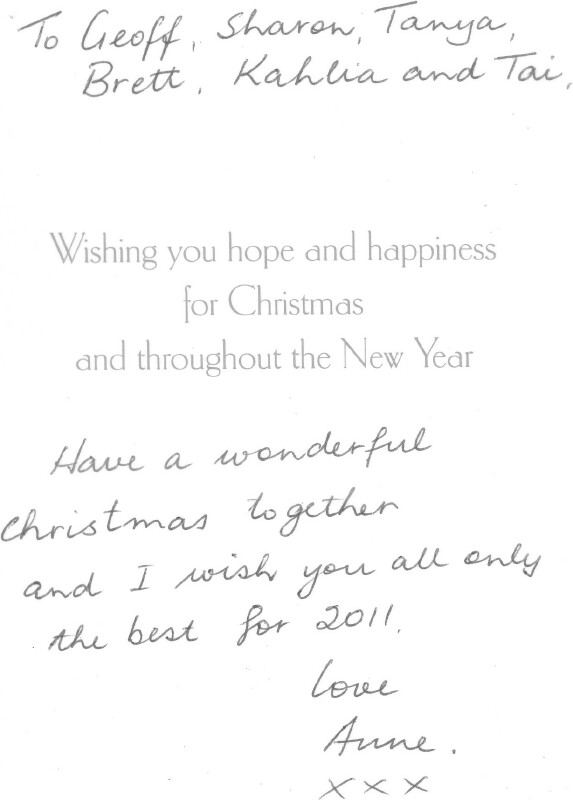 To Geoff, Sharon, Tanya,
Brett, Kahlia and Tai,
Wishing you hope and happiness
for Christmas
and throughout the New Year
Have a wonderful
Christmas together
and I wish you all only
the best for 2011.
Love
Anne.
XXX